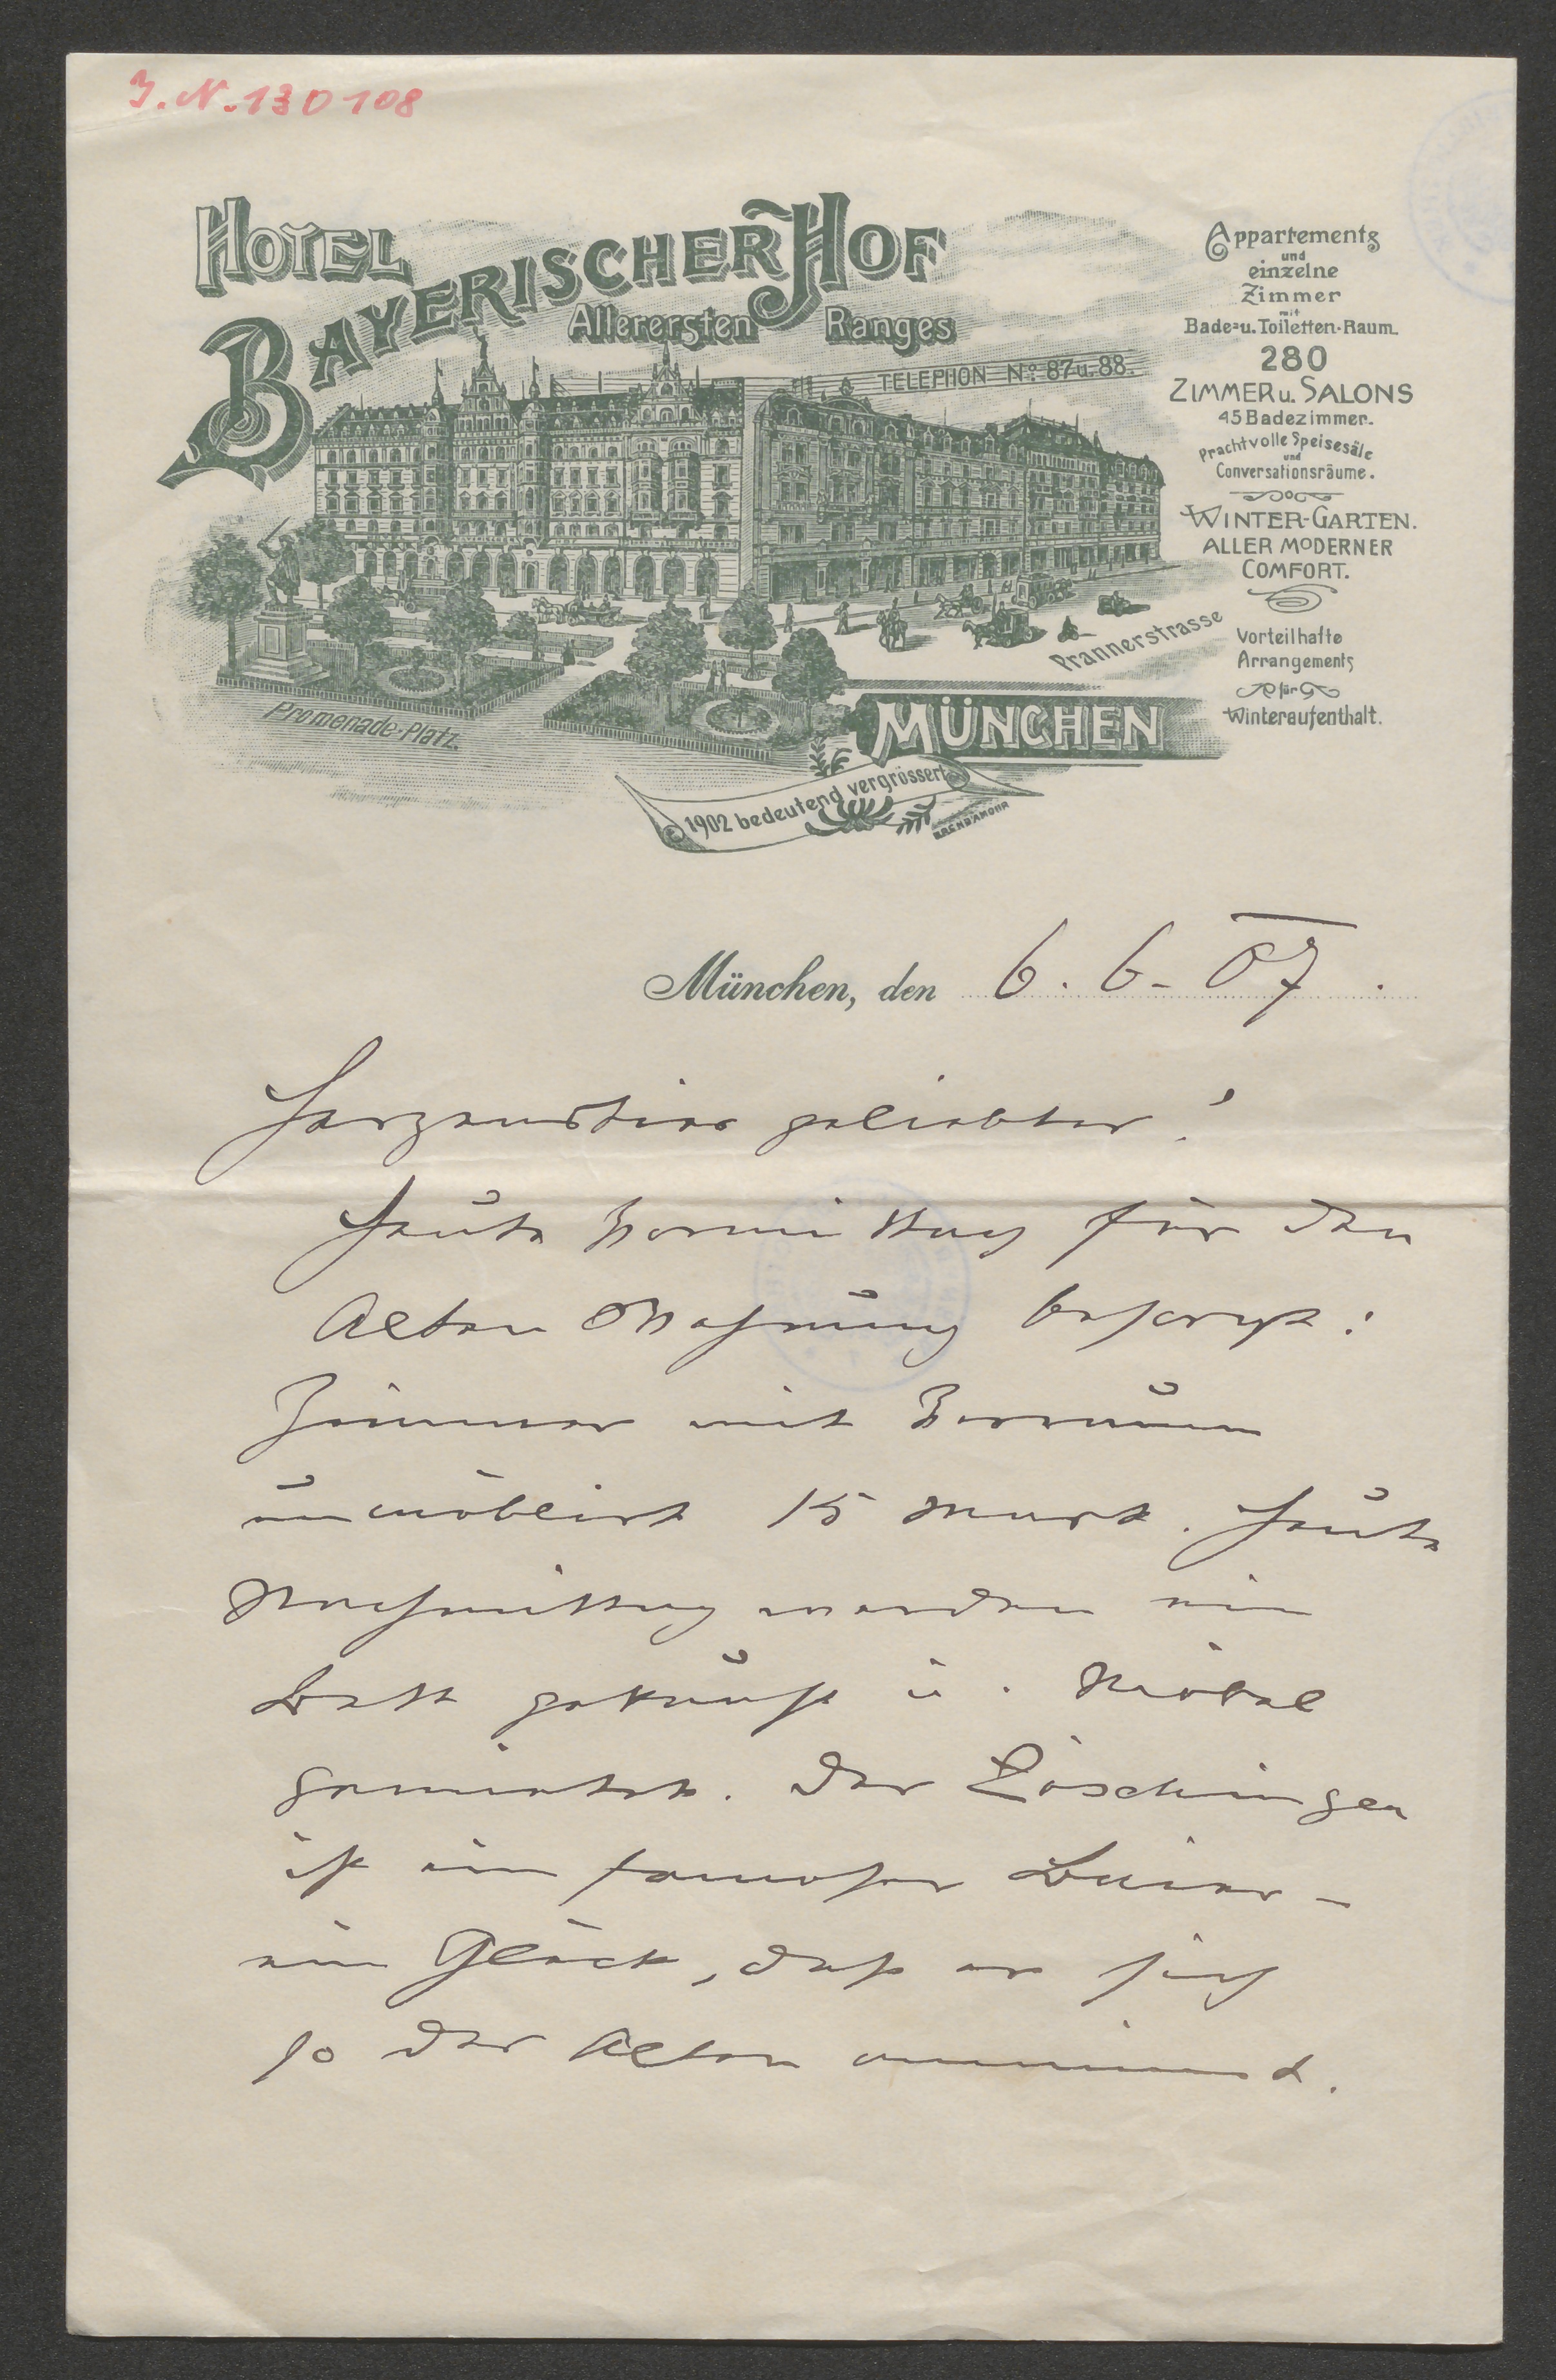 I. N. 130108
HOTEL
BAYERISCHER HOF
Allerersten Ranges
TELEPHON No. 87 u. 88.
Appartements
und
einzelne
Zimmer
mit
Bade- u. Toiletten-Raum.
280
ZIMMER u. SALONS
45 Badezimmer.
Prachtvolle Speisesäle
und
Conversationsräume.
WINTER-GARTEN.
ALLER MODERNER
COMFORT.
Vorteilhafte
Arrangements
für
Winteraufenthalt.
Prannerstrasse
Promenade-Platz.
MÜNCHEN
1902 bedeutend vergrössert
BREND'AMOUR
München, den 6. 6. 07.
geliebter!
Heute Vormittag für den
Alten Wohnung besorgt:
Zimmer mit Vorraum
unmöblirt 15 Mark. Heute
Nachmittag werden ein
Bett gekauft u. Möbel
gemietet. Der Löschinger
ist ein famoser Baier –
ein Glück, daß er sich
so der Alten annimmt.